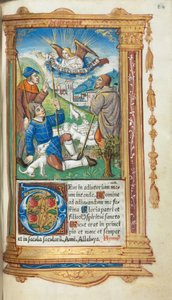 Deus in adiutorium me
um intende. Domine
ad adiuvandum me fes
tina Gloria patri et
filio et Spiritui sancto
Sicut erat in princi
pio et nunc et semper
et in secula seculorum. Amē. Alleluya.